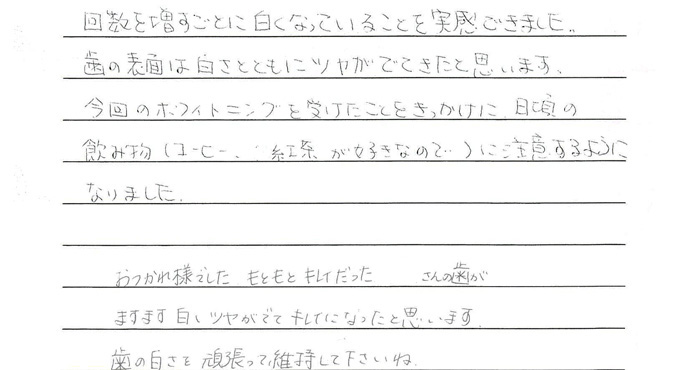 回数を増すごとに白くなっていることを実感できました。
歯の表面は白さとともにツヤがでてきたと思います。
今回のホワイトニングを受けたことをきっかけに、日頃の
飲み物(コーヒー、紅茶が好きなので)に注意するように
なりました。
おつかれ様でした もともとキレイだった さんの歯が
ますます白いツヤがでてキレイになったと思います。
歯の白さを頑張って維持して下さいね。